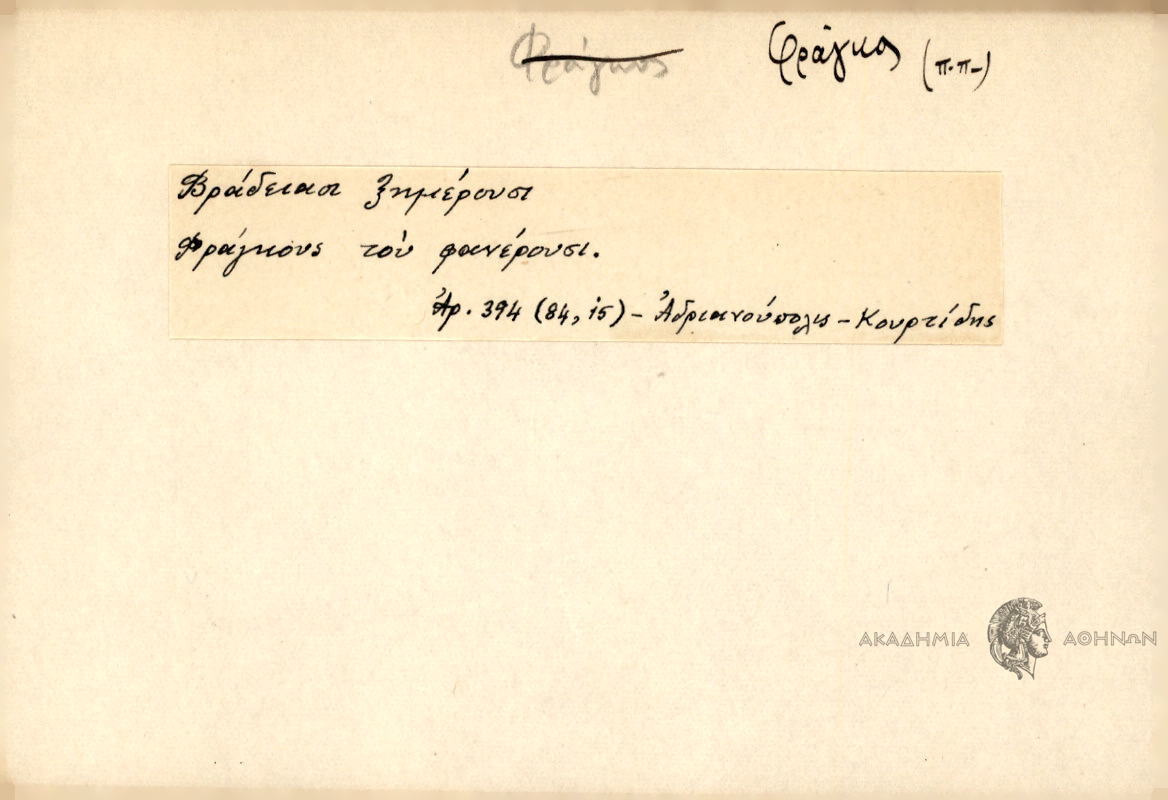 Φράγκος Φράγκος (π.π-)
Βράδειασι ξημέρουσι
Φράγκους τού φανέρουσι.
Ἀρ. 394 (84, 15) - Ἀδριανούπολις - Κουρτίδης
ΑΚΑΔΗΜΙΑ ΑΘΗΝΩΝ